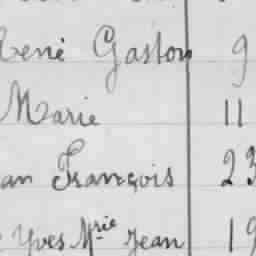 René Gaston 9
Marie 11
an François 23
Yves Mrie Jean 19